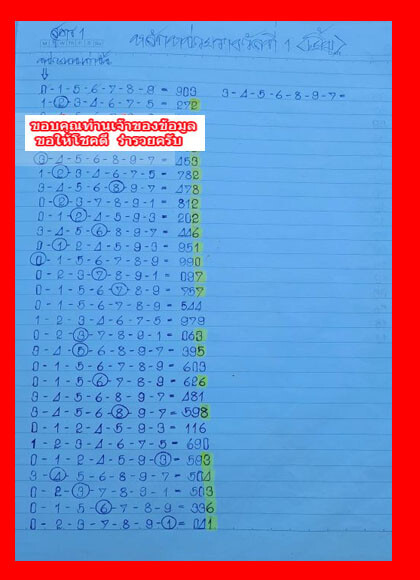 สูตร 1
0-1-5-6-7-8-9 = 903
3-4-5-6-8-9-7=
1-2-3-4-6-7-5 = 272
ขอบคุณท่านเจ้าของข้อมูล
ขอให้โชคดี ร่ำรวยครับ
3-4-5-6-8-9-7 = 453
1-2-3-4-6-7-5 = 782
3-4-5-6-8-9-7 = 478
0-2-3-7-8-9-1 = 812
0-1-2-4-5-9-3 = 202
3-4-5-6-8-9-7 = 446
0-1-2-4-5-9-3 = 951
0-1-5-6-7-8-9 = 990
0-2-3-7-8-9-1 = 097
0-1-5-6-7-8-9 = 757
0-1-5-6-7-8-9 = 544
1-2-3-4-6-7-5 = 979
0-2-3-7-8-9-1 = 063
3-4-5-6-8-9-7 = 395
0-1-5-6-7-8-9 = 603
0-1-5-6-7-8-9 = 626
3-4-5-6-8-9-7 = 481
3-4-5-6-8-9-7 = 598
0-1-2-4-5-9-3 = 116
1-2-3-4-6-7-5 = 690
0-1-2-4-5-9-3 = 593
3-4-5-6-8-9-7 = 504
0-2-3-7-8-9-1 = 503
0-1-5-6-7-8-9 = 336
0-2-3-7-8-9-1 = 041